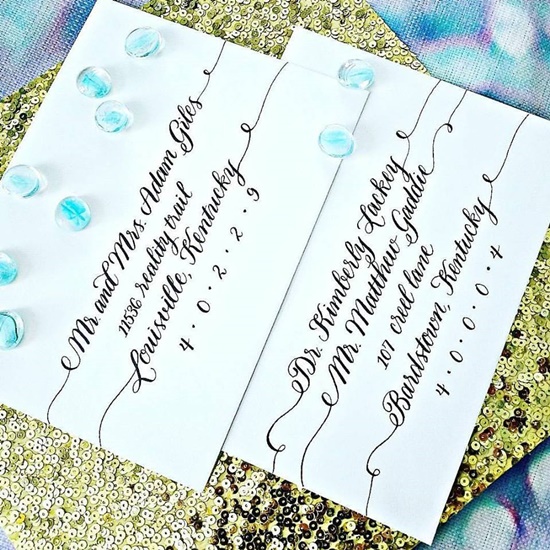 Mr. and Mrs. Adam Giles
11536 reality trail
Louisville, Kentucky
4•0•2•2•9
Dr. Kimberly Lackey
Mr. Matthew Gaddie
107 creel lane
Bardstown, Kentucky
4•0•0•0•4